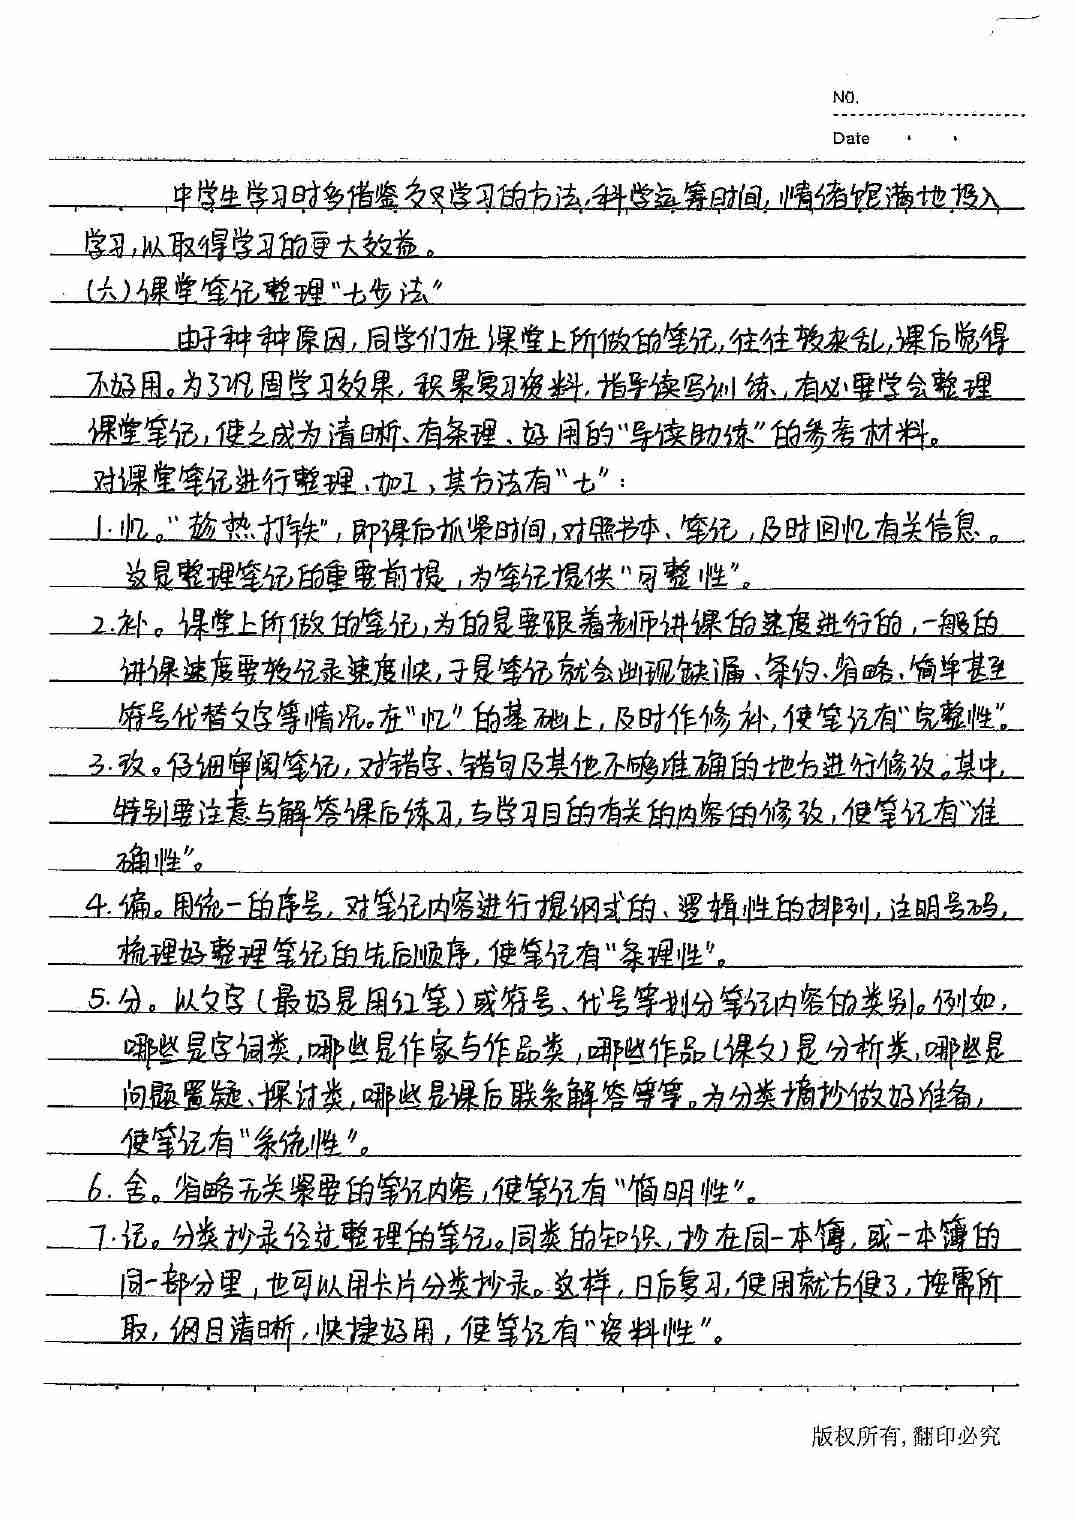 NO.
Date
中学生学习时多借鉴交叉学习的方法,科学运筹时间,情绪饱满地投入
学习,以取得学习的更大效益。
(六)课堂笔记整理“七步法”
由于种种原因,同学们在课堂上所做的笔记,往往较杂乱,课后觉得
不好用。为了巩固学习效果,积累复习资料,指导读写训练,有必要学会整理
课堂笔记,使之成为清晰、有条理、好用的“导读助练”的参考材料。
对课堂笔记进行整理、加工,其方法有“七”:
1.忆。“趁热打铁”,即课后抓紧时间,对照书本、笔记,及时回忆有关信息。
这是整理笔记的重要前提,为笔记提供“可整性”。
2.补。课堂上所做的笔记,为的是要跟着老师讲课的速度进行的,一般的
讲课速度要较记录速度快,于是笔记就会出现缺漏、条约、省略、简单甚至
符号代替文字等情况。在“忆”的基础上,及时作修补,使笔记有“完整性”。
3.改。仔细审阅笔记,对错字、错句及其他不够准确的地方进行修改。其中,
特别要注意与解答课后练习,与学习目的有关的内容的修改,使笔记有“准
确性”。
4.偏。用统一的序号,对笔记内容进行提纲式的、逻辑性的排列,注明号码,
梳理好整理笔记的先后顺序,使笔记有“条理性”。
5.分。以文字(最好是用红笔)或符号、代号等划分笔记内容的类别。例如,
哪些是字词类,哪些是作家与作品类,哪些作品(课文)是分析类,哪些是
问题置疑、探讨类,哪些是课后联系解答等等。为分类摘抄做好准备,
使笔记有“系统性”。
6.舍。省略无关紧要的笔记内容,使笔记有“简明性”。
7.记。分类抄录经过整理的笔记。同类的知识,抄在同一本簿,或一本簿的
同一部分里,也可以用卡片分类抄录。这样,日后复习,使用就方便了,按需所
取,纲目清晰,快捷好用,使笔记有“资料性”。
版权所有,翻印必究